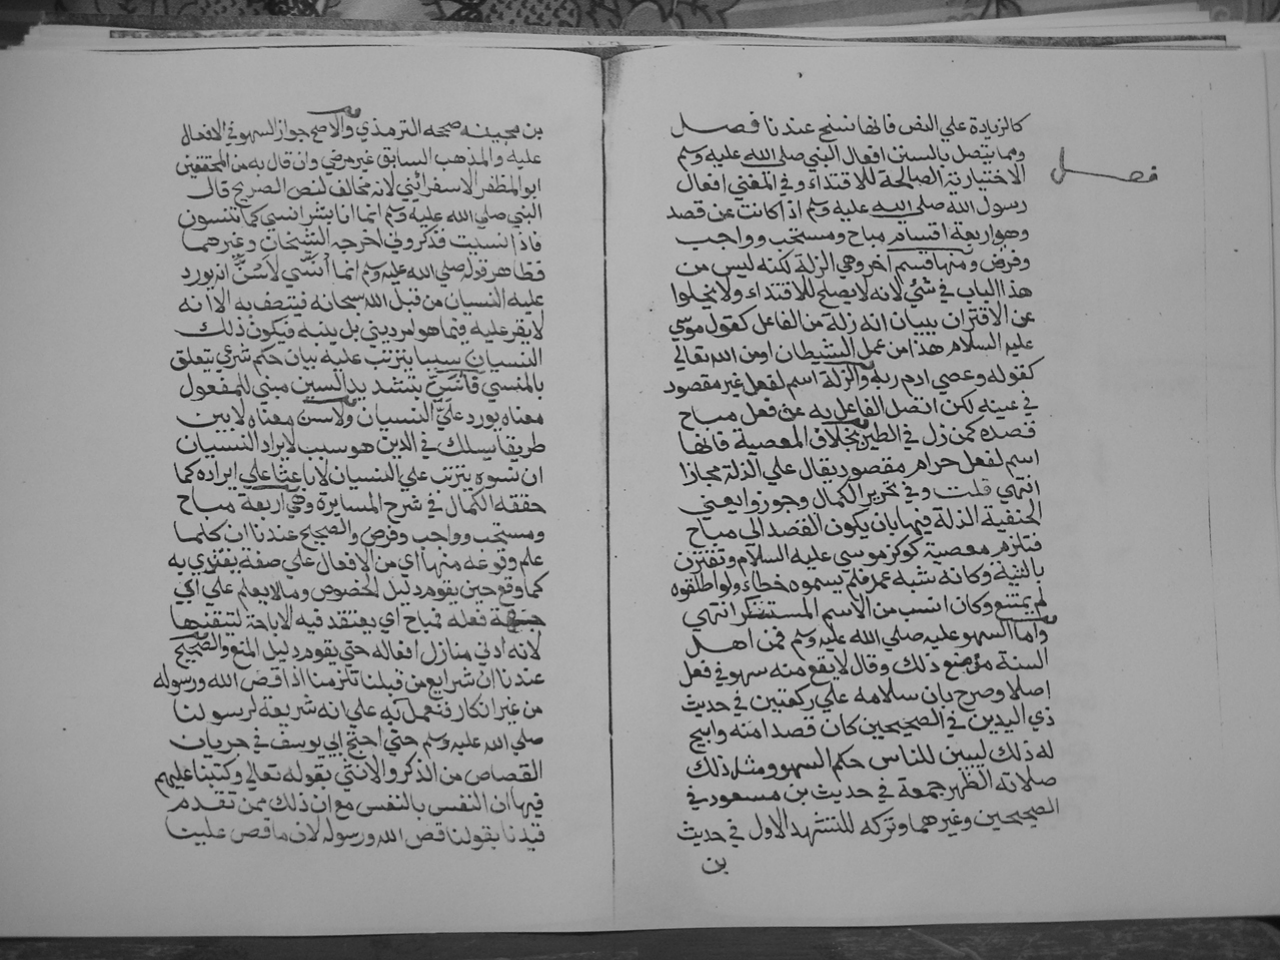 كالزيادة علي النص فانها نسخ عندنا فصل
ومما يتصل بالسنن افعال النبي صلى الله عليه وسلم
فصل
الاختيارية الصالحة للاقتداء وفي المغني افعال
رسول الله صلى الله عليه وسلم اذا كانت عن قصد
وهو اربعة اقسام مباح ومستحب وواجب
وفرض ومنها قسم آخر وهي الزلة لكنه ليس من
هذا الباب في شئ لانه لا يصلح للاقتداء ولا يخلوا
عن الاقتران ببيان انه زلة من الفاعل كقول موسي
عليه السلام هذا من عمل الشيطان او من الله تعالي
كقوله وعصي ادم ربه والزلة اسم لفعل غير مقصود
في عينه لكن اتصل الفاعل به عن فعل مباح
قصده كمن زل في الطين بخلاف المعصية فانها
اسم لفعل حرام مقصود يقال علي الزلة مجازا
انتهي قلت وفي تحرير الكمال وجوزوا يعني
الحنفية الزلة فيها بان يكون القصد الي مباح
فتلزم معصية كوكز موسي عليه السلام وتقترن
بالنية وكانه شبه عمد فلم يسموه خطاء ولو اطلقوه
لم يمتنع وكان انسب من الاسم المستنكر انتهي
واما السهو عليه صلي الله عليه وسلم فمن اهل
السنة من منع ذلك وقال لا يقع منه سهو في فعل
اصلا وصرح بان سلامه علي ركعتين في حديث
ذي اليدين في الصحيحين كان قصدا منه وابيح
له ذلك ليبين للناس حكم السهو ومثل ذلك
صلاته الظهر خمسة في حديث بن مسعود في
الصحيحين وغيرهما وتركه للتشهد الاول في حديث
بن
بن بحينه صححه الترمذي والاصح جواز السهو في الافعال
عليه والمذهب السابق غير مرضي وان قال به من المحققين
ابو المظفر الاسفرائيني لانه مخالف لنص الصريح قال
النبي صلى الله عليه وسلم انما انا بشر انسي كما تنسون
فاذا نسيت فذكروني اخرجه الشيخان وغيرهما
فظاهر قوله صلي الله عليه وسلم انما أُنَسَّي لأسُنَّ انه يورد
عليه النسيان من قبل الله سبحانه فيتصف به الا انه
لا يقر عليه فيما هو امر ديني بل ينبه فيكون ذلك
النسيان سببا يترتب عليه بيان حكم شرعي يتعلق
بالمنسي فأُنَسَّي بتشديد السين مبني للمفعول
معناه يورد عليّ النسيان ولاسن معناه لابين
طريقا يسلك في الدين هو سبب لايراد النسيان
ان نسوه يترتب علي النسيان لا باعثا علي ايراده كما
حققه الكمال في شرح المسايرة وهي اربعة مباح
ومستحب وواجب وفرض والصحيح عندنا ان كلما
علم وقوعه منها اي من الافعال علي صفة يقتدي به
كما وقع حين يقوم دليل الخصوص وما لا يعلم علي اي
جهة فعله فمباح اي يعتقد فيه الاباحة لتيقنها
لانه ادني منازل افعاله حتي يقوم دليل المنع والصحيح
عندنا ان شرايع من قبلنا تلزمنا اذا قص الله ورسوله
من غير انكار فنعمل به علي انه شريعة لرسولنا
صلي الله عليه وسلم حتي احتج ابي يوسف في جريان
القصاص من الذكر والانثي بقوله تعالي وكتبنا عليهم
فيها ان النفس بالنفس مع ان ذلك ممن تقدم
قيدنا بقولنا قص الله ورسوله لان ما قص علينا